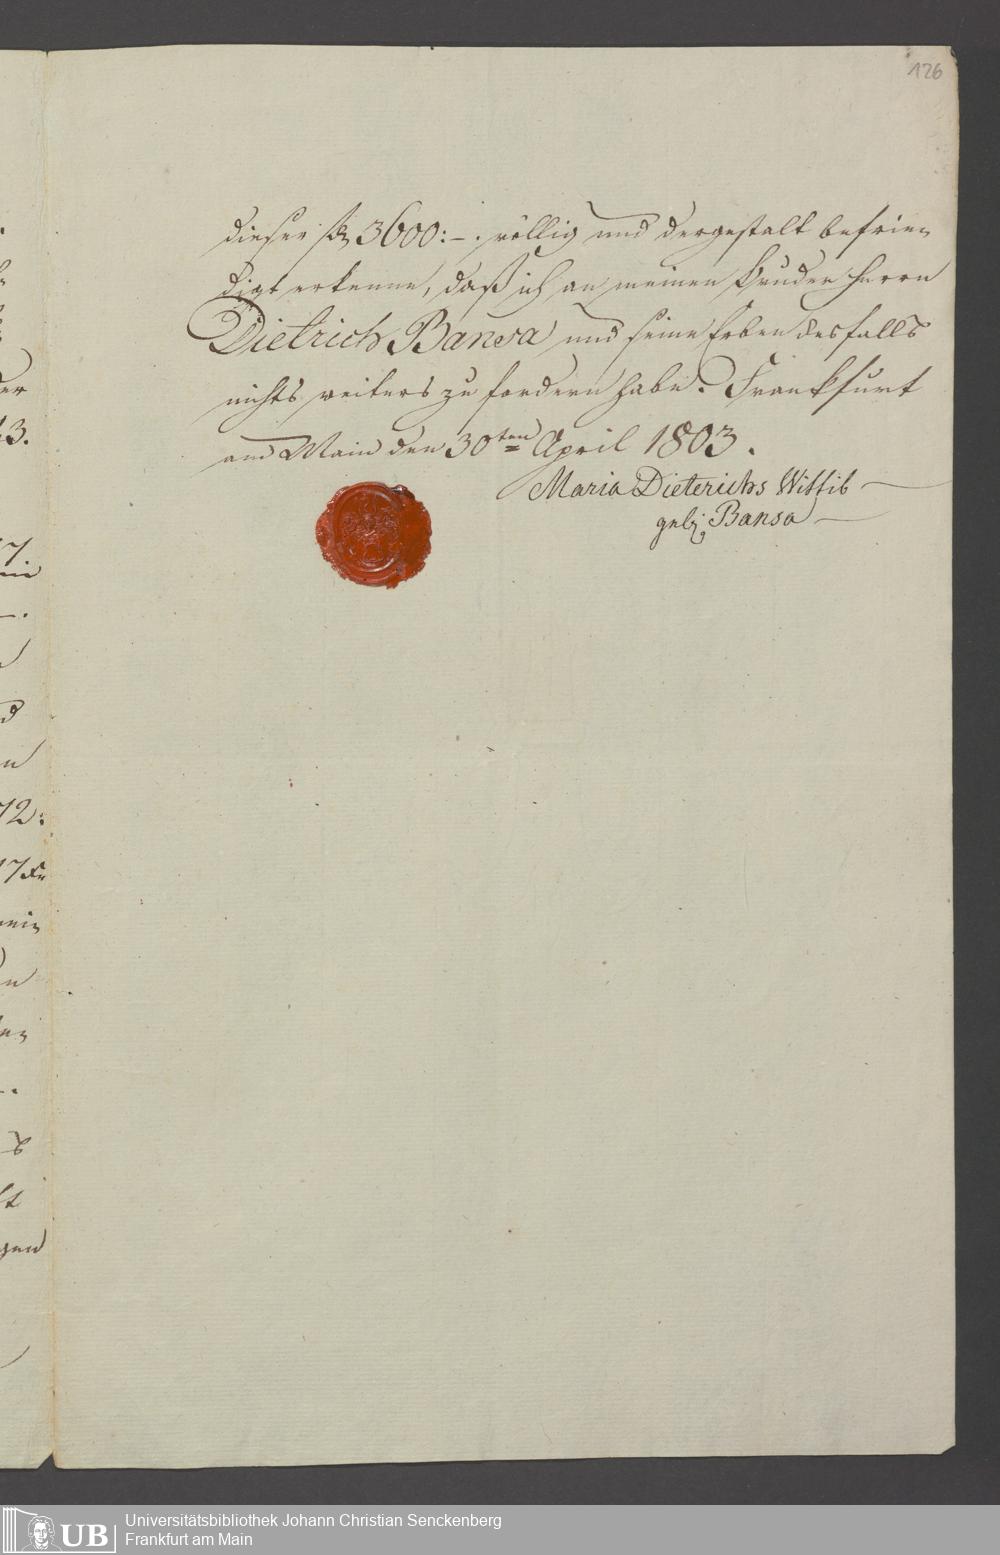 126
dieser fl 3600:–. völlig und dergestalt befrie-
digt erkenne, daß ich an meinen Bruder Herrn
Dietrich Bansa und seine Erben desfalls
nichts weiters zu fordern habe. Frankfurt
am Main den 30ten April 1803.
Maria Dieterichs Wittib
geb: Bansa
UB
Universitätsbibliothek Johann Christian Senckenberg
Frankfurt am Main